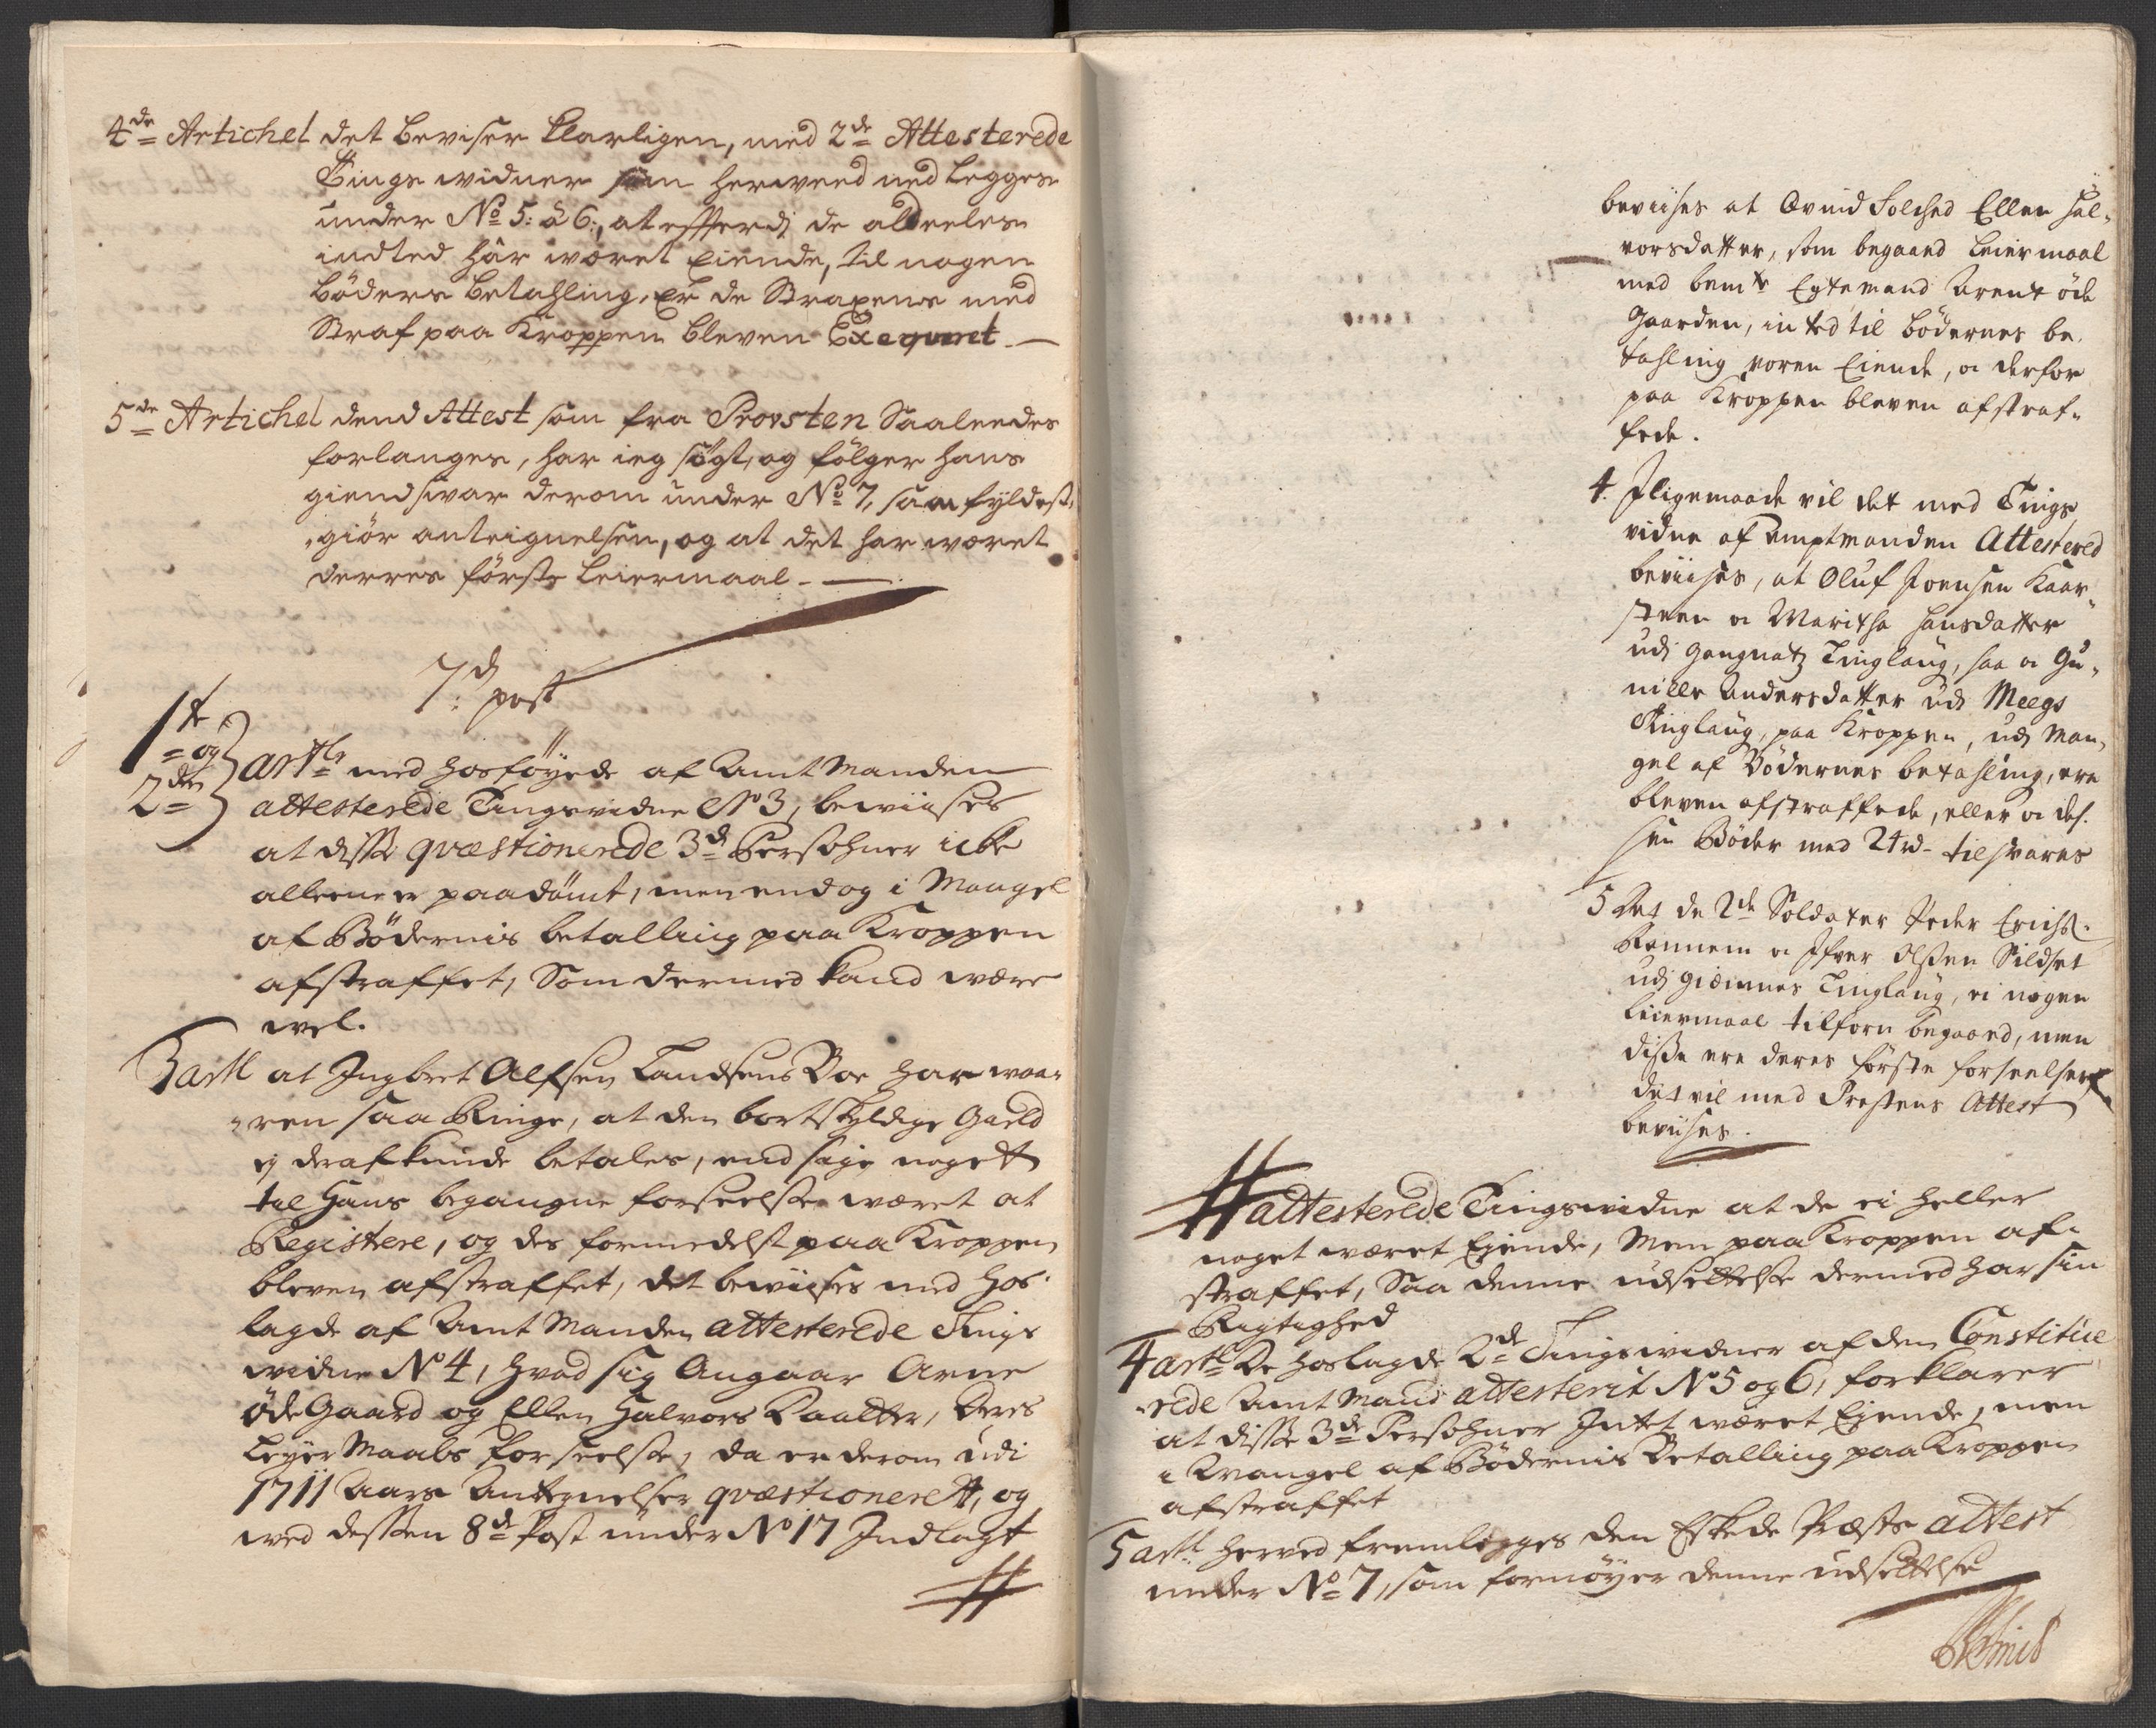 4de Artichel det beviser klarligen, med 2de Attesterede
Tings widner som herweed ned legges
under No 5: â 6:, at efftterdj de aldeeles
indted hâr wæret Eiende, til nogen
böders betahling, Er de Straxens med
Straf paa Kroppen bleven Exeqveret.
5de Artichel dend Attest som fra Provsten Saaleedes
forlanges, har ieg sögt, og fölger hans
giensvar derom under No 7, som fyldest,
giör anteignelsen, og at det har wæret
derres förste leiermaal.
7d: post
1te
og
2den
artlr med hosföyede af Amt Manden
attesterede Tingswidne No 3, bewiises
at disse qvæstionerede 3de Persohner icke
alleene er paadömt, men end og i Mangel
af Bödernis betalling paa Kroppen
afstraffet, Som dermed kand være
vel.
3 artl at Ingbret Olfsen Landsens Boe har waa-
ren saa Ringe, at den bortskyldige Gield
ej deraf kunde betales, end sige noget
til Hans begangne forseelse wæret at
Registere, og des formedelst paa Kroppen
bleven afstraffet, det bewiises med hos-
lagde af Amt Manden attesterede Tings
widne No 4, hvad sig Angaar Arne
ödeGaard og Ellen Halvors Daatter, Deris
Leyer Maals forseelse, da er derom udi
1711 Aars Antegnelser qvæstioneret, og
wed dessen 8de Post under No 17 Indlagt
#
beviises at Qvind Folched Ellen Hal-
vorsdatter, som begaaed leiermaal
med bemte Egtemand Arent öde
Gaarden, inted til bödernes be-
tahling voren Eiende, og derfor
paa Kroppen bleven afstraf-
fede.
4. Iligemaade vil det med Tings
vidne af Amptmanden Attestered
beviises, at Oluf Joensen Kaar-
steen og Maritha Hansdatter
udj Tinglaug, saa og Gu-
nille Andersdatter udj Meegs
Tinglaug, paa Kroppen, udj Man-
gel af Bödernes betahling, ere
bleven afstraffede, eller og des-
sen Böder med 24 rd tilsvares
5 At de 2de Soldater Peder Erichs.
Rennem og Ifver Olssen Sildset
udj Giemnes Tinglaug, ei nogen
leiermaal tilforn begaaed, men
disse ere deres förste forseelser,
det vil med Prestens Attest
beviises.
# attesterede Tingswidne at de ei heller
noget wæret Ejende, Men paa Kroppen af-
straffet, Saa denne udsettelse dermed har sin
Rigtighed
4 artl De hoslagde 2de Tingswidner af den Constitue
rede Amt Mand attesterit No 5 og 6, forklarer
at disse 3de Persohner Intet wæret Ejende, men
i Mangel af Bödernis Betalling paa Kroppen
afstraffet
5 artl herved fremlegges den Eskede Præste attest
under No 7, som fornöyer denne udsettelse